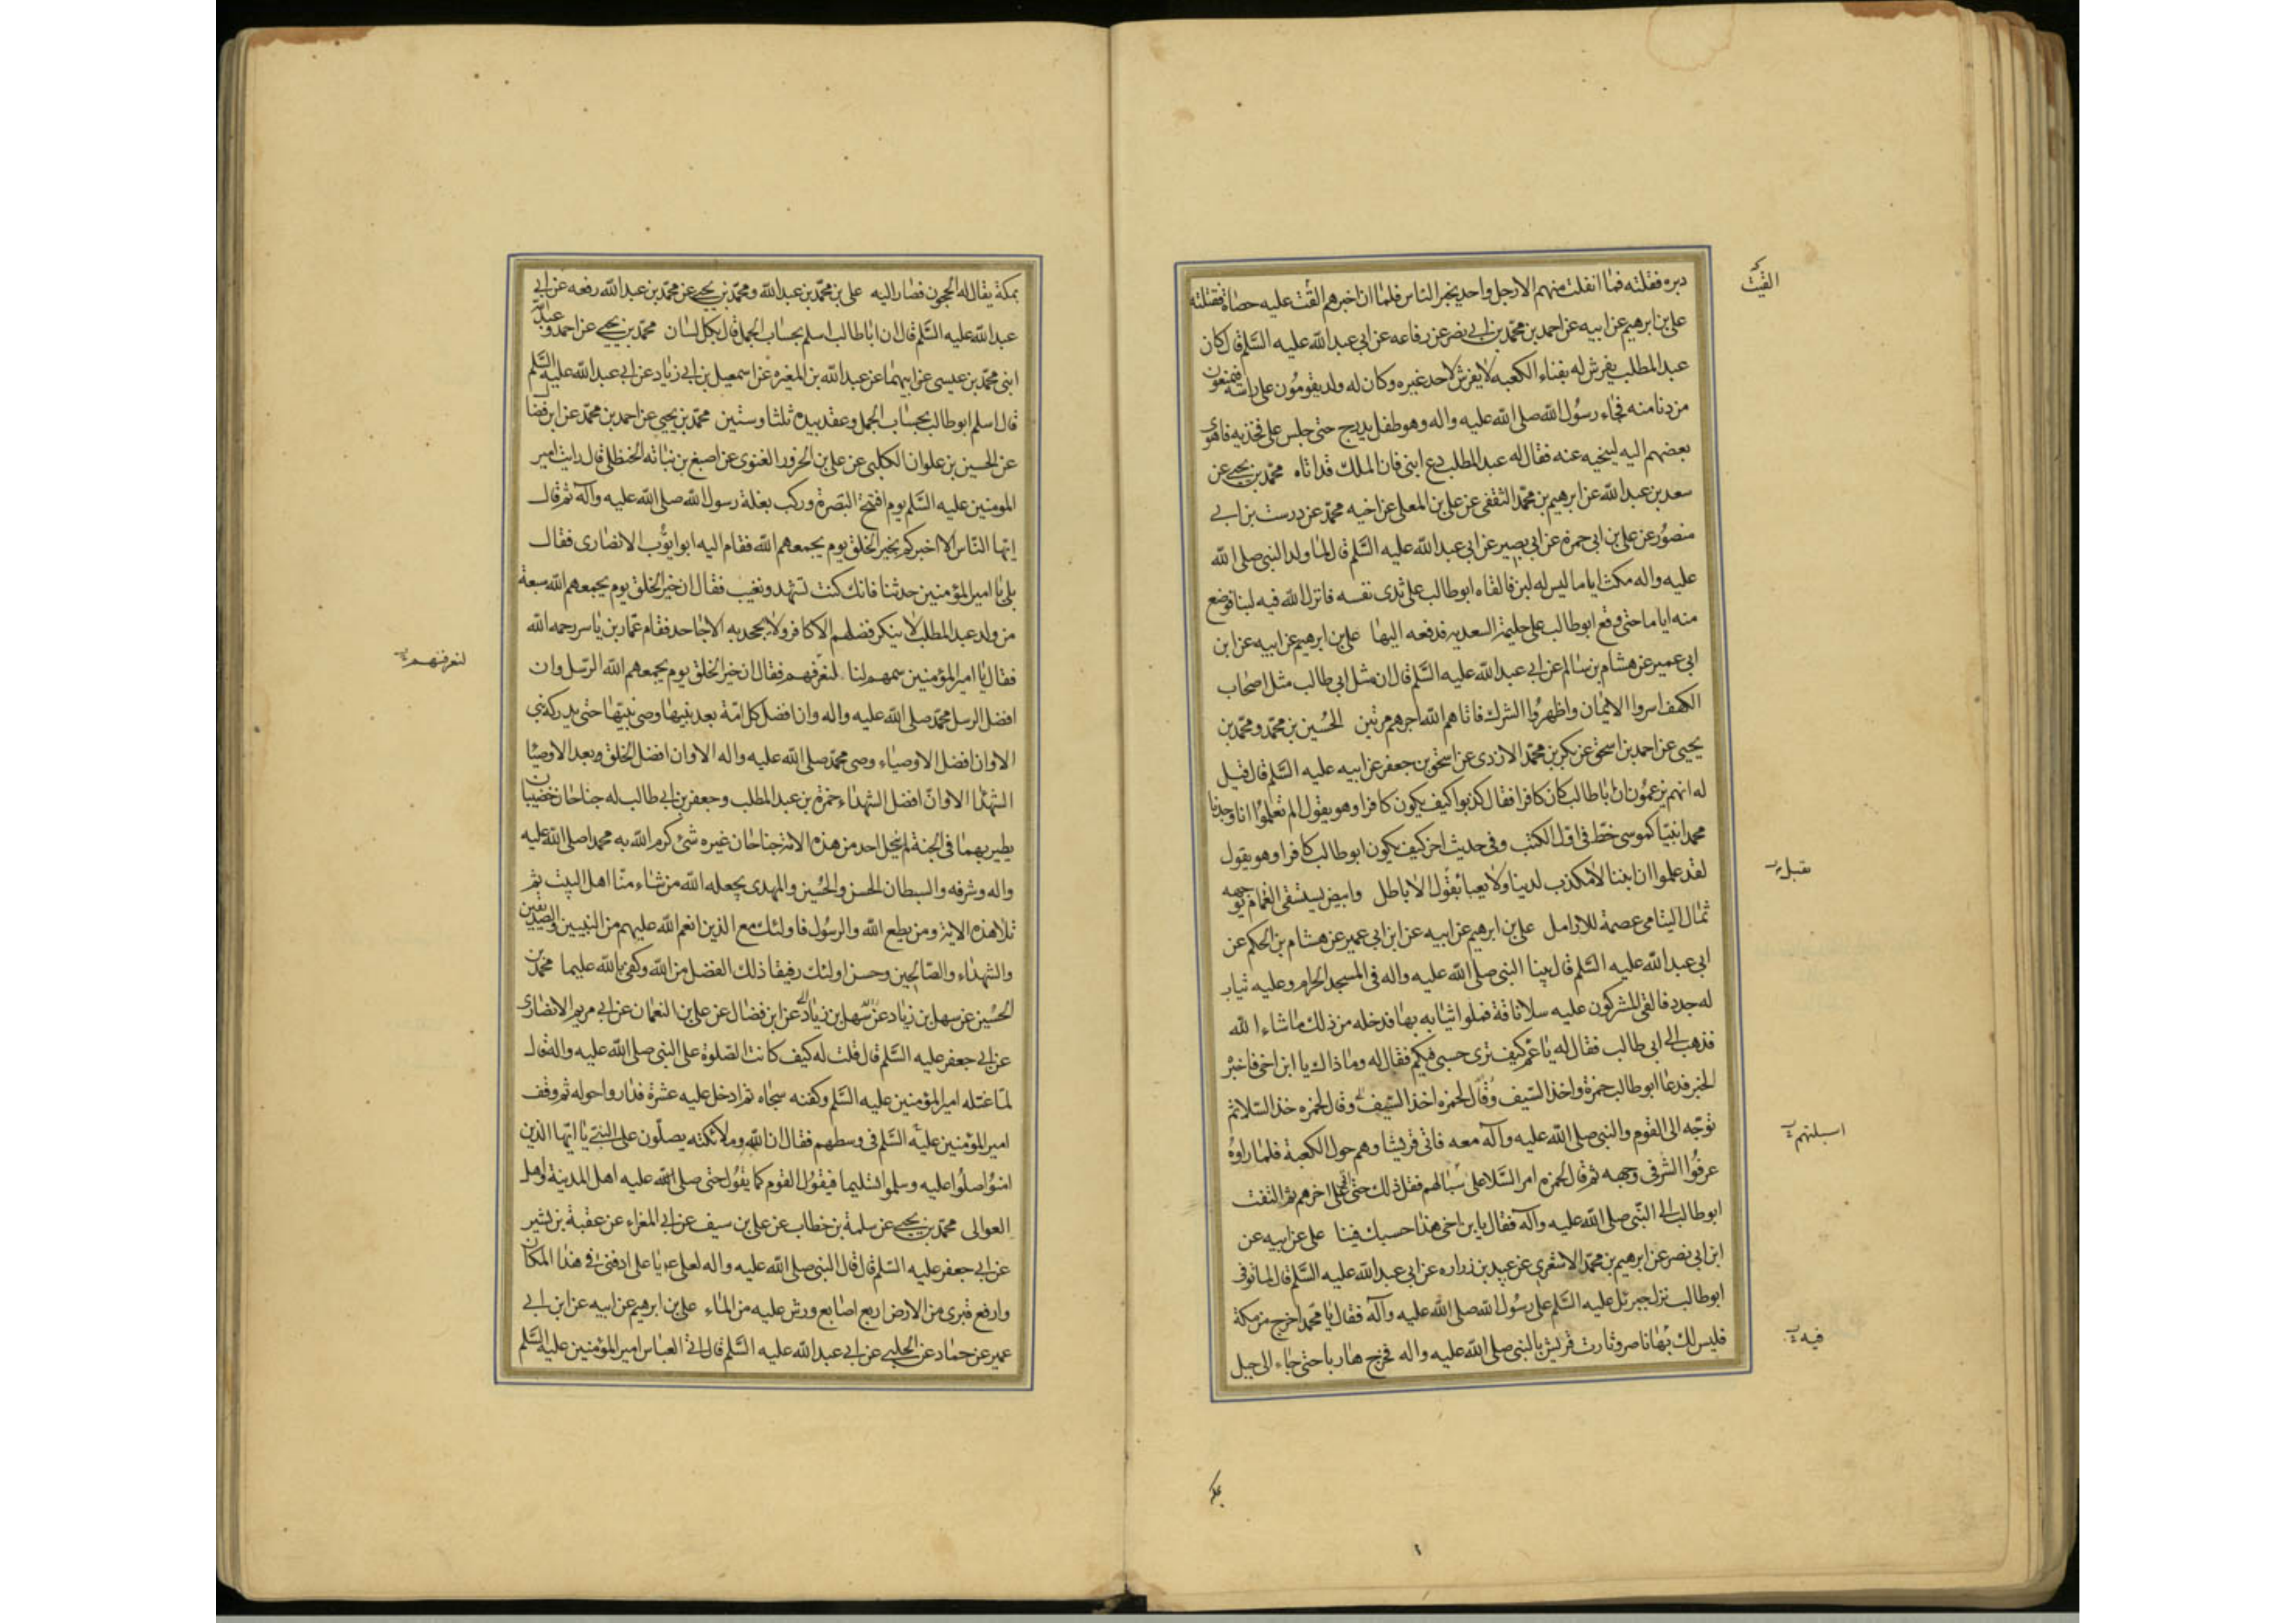 دبره فقتلته فما انفلت منهم الا رجل واحد يخبر الناس فلما ان اخبرهم القت عليه حصاة فقتلته
على بن ابرهيم عن ابيه عن احمد بن محمد بن ابى نصر عن رفاعه عن ابى عبد الله عليه السلم قال كان
عبد المطلب يفرش له بفناء الكعبه لا يفرش لاحد غيره وكان له ولد يقومون على راسه فيمنعون
من دنا منه فجاء رسول الله صلى الله عليه واله وهو طفل يدرج حتى جلس على فخذيه فاهوى
بعضهم اليه لينحيه عنه فقال له عبد المطلب دع ابنى فان الملك قد اتاه محمد بن يحيى عن
سعد بن عبد الله عن ابرهيم بن محمد الثقفى عن على بن المعلى عن اخيه محمد عن درست بن ابى
منصور عن على بن ابى حمزه عن ابى بصير عن ابى عبد الله عليه السلم قال لما ولد النبى صلى الله
عليه واله مكث اياما ليس له لبن فالقاه ابوطالب على ثدى نفسه فانزل الله فيه لبنا فرضع
منه اياما حتى وقع ابوطالب على حليمة السعديه فدفعه اليها على بن ابرهيم عن ابيه عن ابن
ابى عمير عن هشام بن سالم عن ابى عبد الله عليه السلم قال ان مثل ابى طالب مثل اصحاب
الكهف اسروا الايمان واظهروا الشرك فاتاهم الله اجرهم مرتين الحسين بن محمد و محمد بن
يحيى عن احمد بن اسحق عن بكر بن محمد الازدى عن اسحق بن جعفر عن ابيه عليه السلم قال قيل
له انهم يزعمون ان اباطالب كان كافرا فقال كذبوا كيف يكون كافرا وهو يقول الم تعلموا انا وجدنا
محمدا نبيا كموسى خط فى اول الكتب وفى حديث اخر كيف يكون ابوطالب كافرا وهو يقول
لقد علموا ان ابننا لا مكذب لدينا ولا يعبا بقول الاباطل وابيض يستسقى الغمام بوجهه
ثمال اليتامى عصمة للارامل على بن ابرهيم عن ابيه عن ابن ابى عمير عن هشام بن الحكم عن
ابى عبد الله عليه السلم قال بينا النبى صلى الله عليه واله فى المسجد الحرام وعليه ثياب
له جدد فالقى المشركون عليه سلا ناقة فملوا ثيابه بها فدخله من ذلك ما شاء الله
فذهب الى ابى طالب فقال له يا عم كيف ترى حسبى فيكم فقال له وما ذاك يا ابن اخى فاخبره
الخبر فدعا ابوطالب حمزة واخذ السيف وقال لحمزه اخذ السيف وقال لحمزه خذ السلا ثم
توجه الى القوم والنبى صلى الله عليه وآله معه فاتى قريشا وهم حول الكعبة فلما راوه
عرفوا الشر فى وجهه ثم قال لحمزه امر السلا على سبالهم ففعل ذلك حتى اتى على اخرهم ثم التفت
ابوطالب الى النبى صلى الله عليه وآله فقال يا بن اخى هذا حسبك فينا على عن ابيه عن
ابن ابى نصر عن ابرهيم بن محمد الاشعرى عن عبيد بن زراره عن ابى عبد الله عليه السلم قال لما توفى
ابوطالب نزل جبرئل عليه السلم على رسول الله صلى الله عليه وآله فقال يا محمد اخرج من مكة
فليس لك بها ناصر وثارت قريش بالنبى صلى الله عليه واله فخرج هاربا حتى جاء الى جبل
القيت
بقيل
اسبلتهم
فيه
بمكة يقال له الحجون فصار اليه على بن محمد بن عبد الله ومحمد بن يحيى عن محمد بن عبد الله رفعه عن ابى
عبد الله عليه السلم قال ان اباطالب اسلم بحساب الجمل قال بكل لسان محمد بن يحيى عن احمد وعبد الله
ابنى محمد بن عيسى عن ابيهما عن عبد الله بن المغيره عن اسمعيل بن ابى زياد عن ابى عبد الله عليه السلم
قال اسلم ابوطالب بحساب الجمل وعقد بيده ثلثا وستين محمد بن يحيى عن احمد بن محمد عن ابن فضال
عن الحسين بن علوان الكلبى عن على بن الحزور الغنوى عن اصبغ بن نباته الحنظلى قال رايت امير
المومنين عليه السلم يوم افتتح البصرة وركب بغلة رسول الله صلى الله عليه وآله ثم قال
ايها الناس الا اخبركم بخير الخلق يوم يجمعهم الله فقام اليه ابوايوب الانصارى فقال
بلى يا امير المؤمنين حدثنا فانك كنت تشهد ونغيب فقال ان خير الخلق يوم يجمعهم الله سبعة
من ولد عبد المطلب لا ينكر فضلهم الا كافر ولا يجحد به الا جاحد فقام عمار بن ياسر رحمه الله
فقال يا امير المؤمنين سمهم لنا لنعرفهم فقال ان خير الخلق يوم يجمعهم الله الرسل وان
افضل الرسل محمد صلى الله عليه واله وان افضل كل امة بعد نبيها وصى نبيها حتى يدركه نبى
الا وان افضل الاوصياء وصى محمد صلى الله عليه واله الا وان افضل الخلق بعد الاوصيا
الشهدا الا وان افضل الشهداء حمزة بن عبد المطلب وجعفر بن ابى طالب له جناحان خضيبان
يطير بهما فى الجنة لم ينحل احد من هذه الامة جناحان غيره شئ كرم الله به محمدا صلى الله عليه
واله وشرفه والسبطان الحسن والحسين والمهدى يجعله الله من شاء منا اهل البيت ثم
تلا هذه الاية ومن يطع الله والرسول فاولئك مع الذين انعم الله عليهم من النبيين والصديقين
والشهداء والصالحين وحسن اولئك رفيقا ذلك الفضل من الله وكفى بالله عليما محمد بن
الحسين عن سهل بن زياد عن سهل بن زياد عن ابن فضال عن على بن النعمان عن ابى مريم الانصارى
عن ابى جعفر عليه السلم قال قلت له كيف كانت الصلوة على النبى صلى الله عليه واله قال
لما غسله امير المؤمنين عليه السلم وكفنه سجاه ثم ادخل عليه عشرة فداروا حوله ثم وقف
امير المؤمنين عليه السلم فى وسطهم فقال ان الله وملائكته يصلون على النبى يا ايها الذين
امنوا صلوا عليه وسلموا تسليما فيقول القوم كما يقول حتى صلى الله عليه اهل المدينة واهل
العوالى محمد بن يحيى عن سلمة بن خطاب عن على بن سيف عن ابى المغراء عن عقبة بن بشير
عن ابى جعفر عليه السلم قال قال النبى صلى الله عليه واله لعلى ع يا على ادفنى فى هذا المكان
وارفع قبرى من الارض اربع اصابع ورش عليه من الماء على بن ابرهيم عن ابيه عن ابن ابى
عمير عن حماد عن الحلبى عن ابى عبد الله عليه السلم قال اتى العباس امير المؤمنين عليه السلم
لنعرفنهم